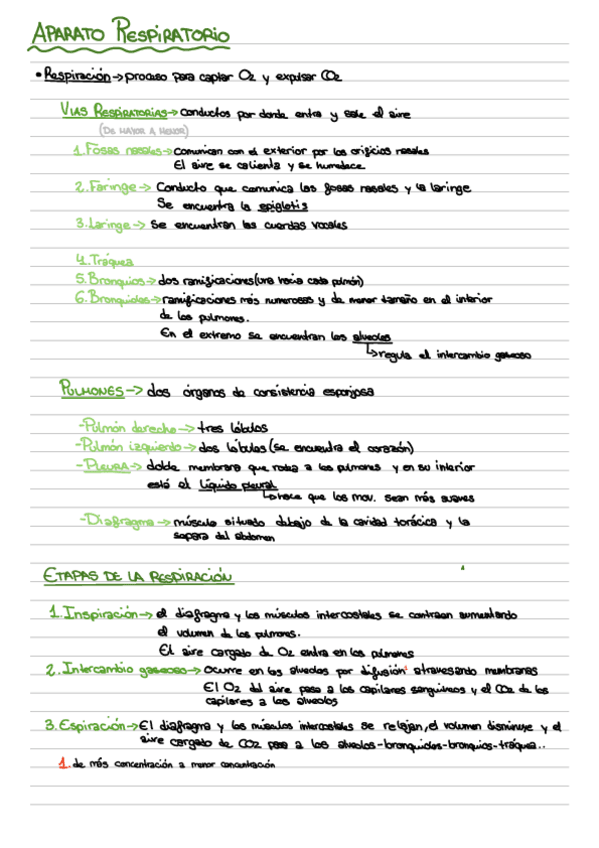 APARATO RESPIRATORIO
• Respiración → proceso para captar O2 y expulsar CO2
VIAS RESPIRATORIAS → conductos por donde entra y sale el aire
(DE MAYOR A MENOR)
1. Fosas nasales → comunican con el exterior por los orificios nasales
El aire se calienta y se humedece
2. Faringe → Conducto que comunica las fosas nasales y la laringe
Se encuentra la epiglotis
3. Laringe → Se encuentran las cuerdas vocales
4. Tráquea
5. Bronquios → dos ramificaciones (una hacia cada pulmón)
6. Bronquiolos → ramificaciones más numerosas y de menor tamaño en el interior
de los pulmones.
En el extremo se encuentran los alveolos
↳ regula el intercambio gaseoso
PULMONES → dos órganos de consistencia esponjosa
- Pulmón derecho → tres lóbulos
- Pulmón izquierdo → dos lóbulos (se encuentra el corazón)
- PLEURA → doble membrana que rodea a los pulmones y en su interior
está el líquido pleural
↳ hace que los mov. sean más suaves
- Diafragma → músculo situado debajo de la cavidad torácica y la
separa del abdomen
ETAPAS DE LA RESPIRACIÓN
1. Inspiración → el diafragma y los músculos intercostales se contraen aumentando
el volumen de los pulmones.
El aire cargado de O2 entra en los pulmones
2. Intercambio gaseoso → ocurre en los alveolos por difusión¹ atravesando membranas
El O2 del aire pasa a los capilares sanguíneos y el CO2 de los
capilares a los alveolos
3. Espiración → El diafragma y los músculos intercostales se relajan, el volumen disminuye y el
aire cargado de CO2 pasa a los alveolos-bronquiolos-bronquios-tráquea..
1. de más concentración a menor concentración